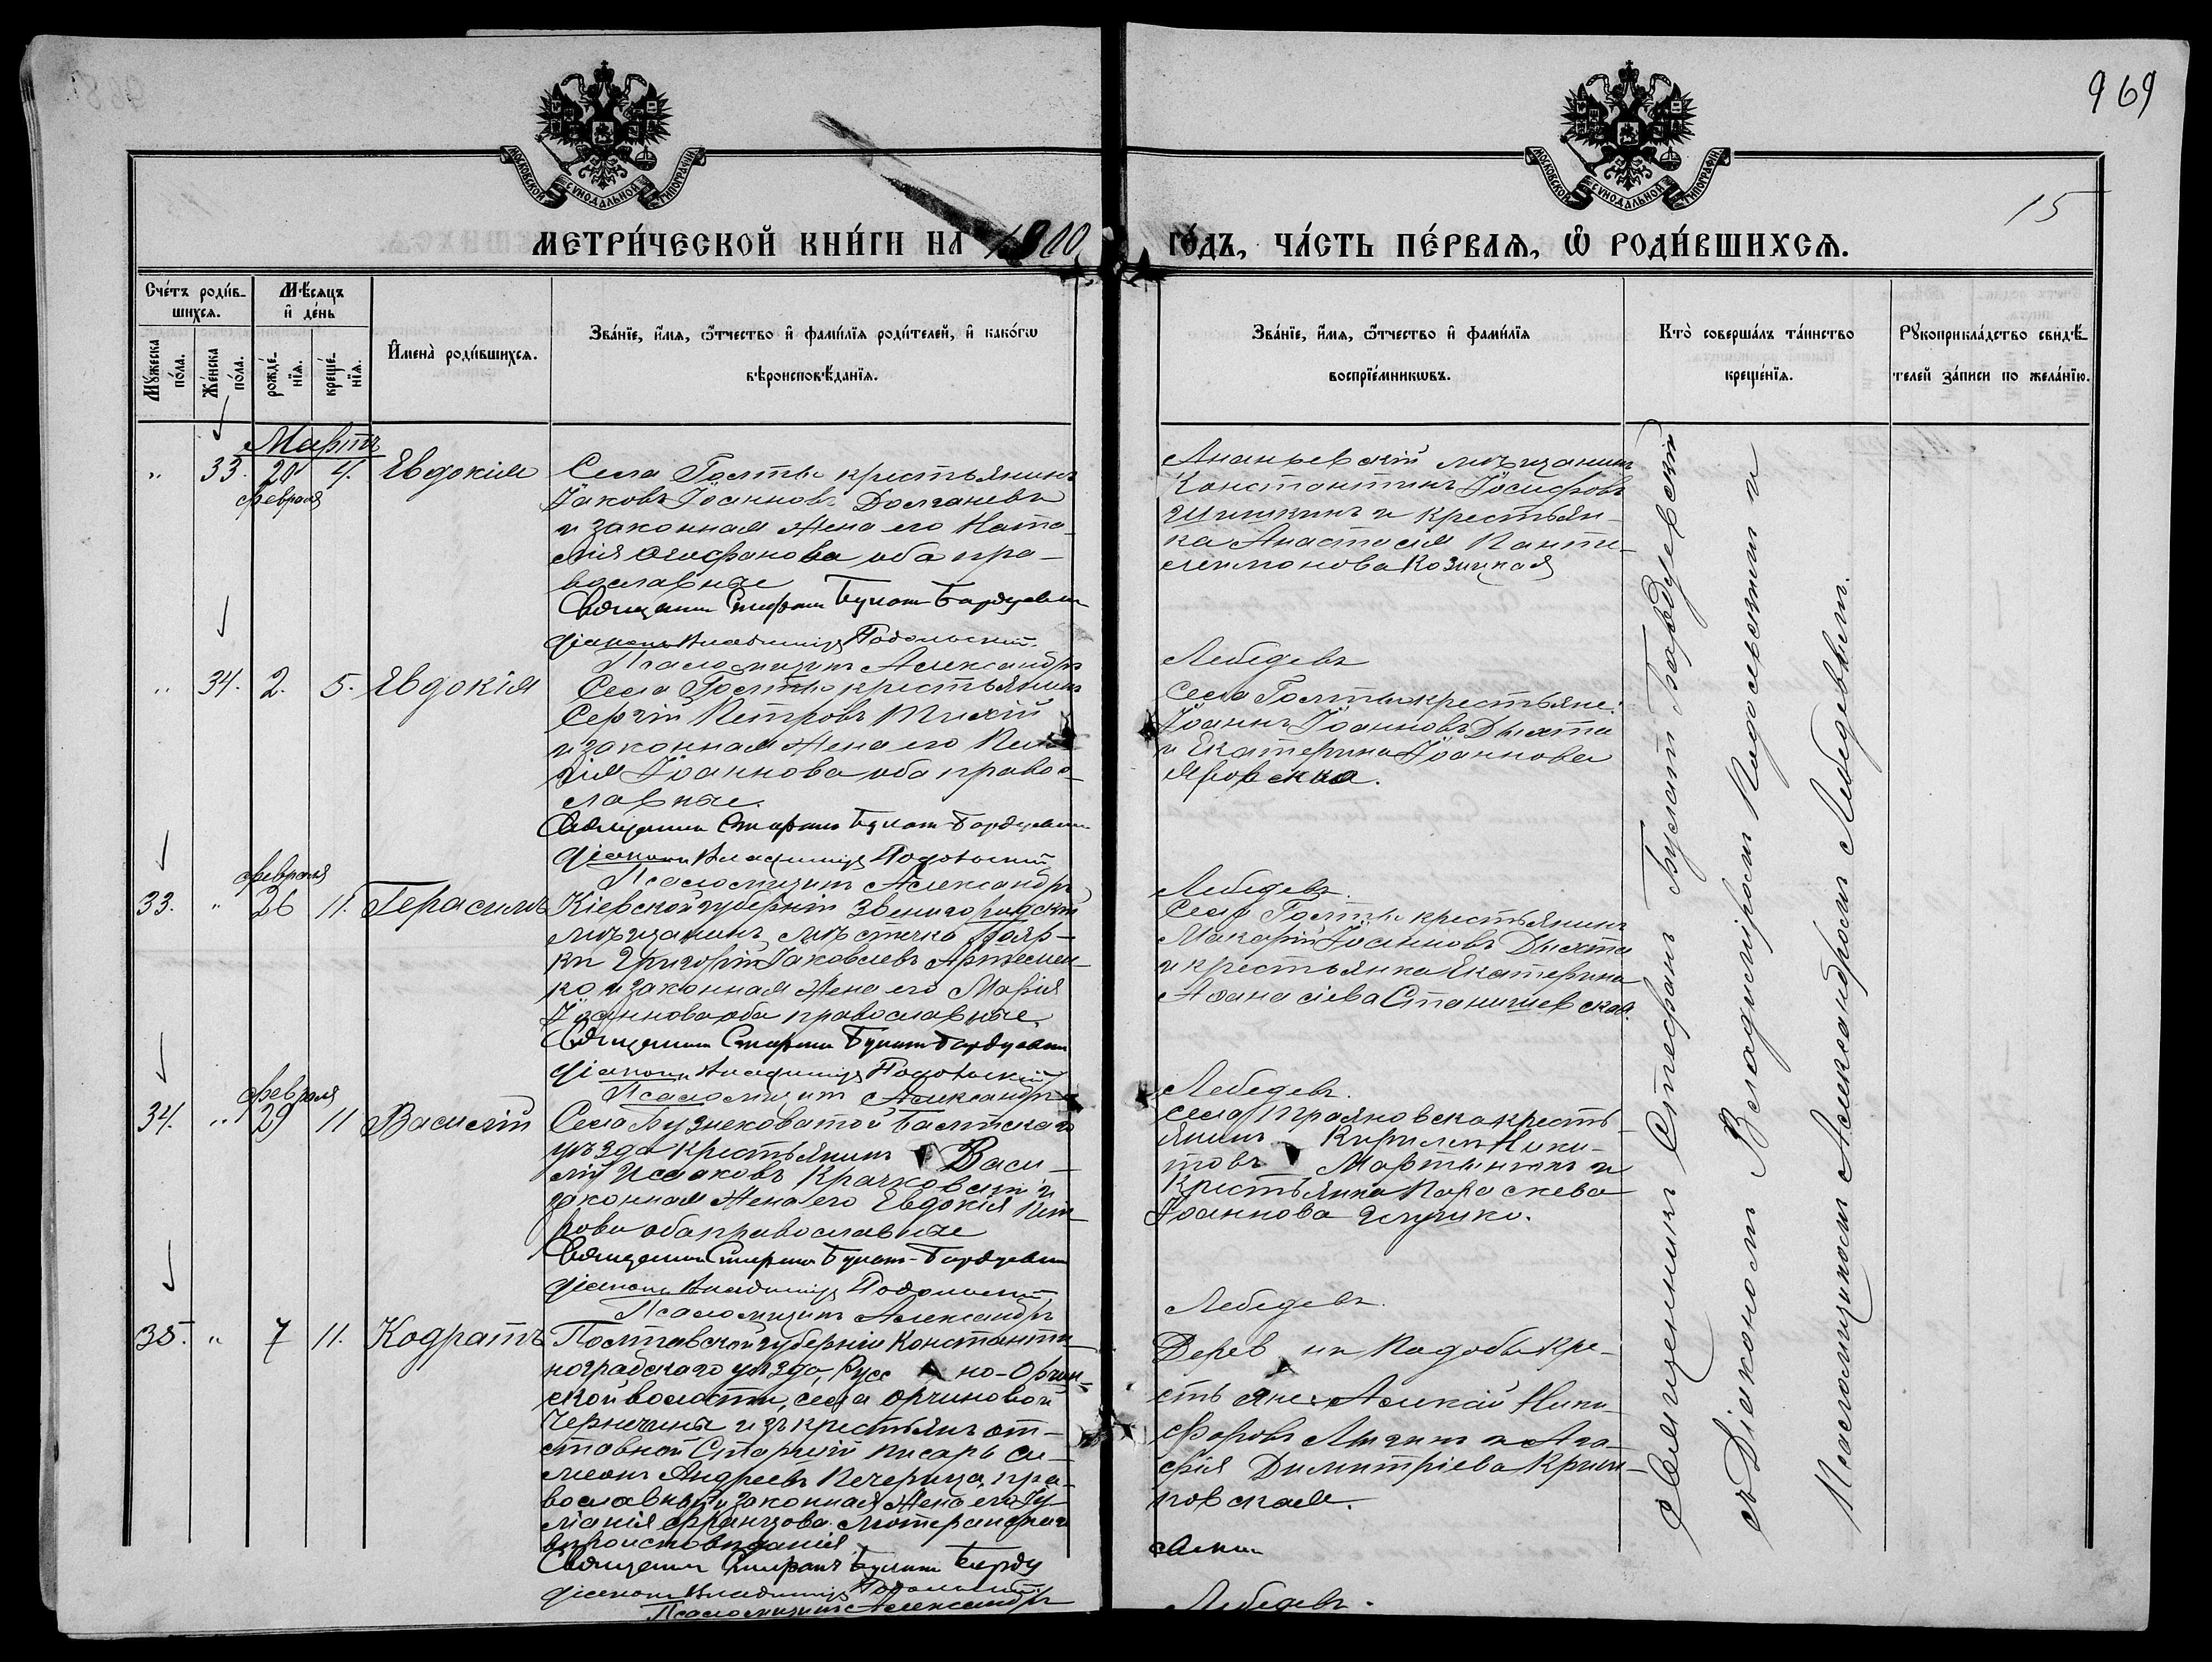 969
15
МОСКОВСКОЙ СѴНОДАЛЬНОЙ ТИПОГРАФІИ
МОСКОВСКОЙ СѴНОДАЛЬНОЙ ТИПОГРАФІИ
МЕТРИ́ЧЕСКОЙ КНИ́ГИ НА
ГО́ДЪ, ЧА́СТЬ ПЕ́РВАЯ, Ѡ҆ РОДИ́ВШИХСЯ.
Сче́тъ роди́в-
шихся.
Мꙋжеска по́ла.
Же́нска по́ла.
Мѣ́сяцъ
и҆ де́нь
рожде́-
нїя.
креще́-
нїя.
И҆мена̀ роди́вшихся.
Зва́нїе, и҆́мя, ѻ҆́тчество и҆ фамѝлїя роди́телей, и҆ како́гѡ
вѣроисповѣ́данїя.
Зва́нїе, и҆́мя, ѻ҆́тчество и҆ фамѝлїя
воспрїе́мникѡвъ.
Кто̀ соверша́лъ та́инство
креще́нїя.
Рꙋкоприкла́дство свидѣ́-
телей за́писи по жела́нїю.
Мартъ
" 33. 20 4. Евдокія
февраля
Села Голты крестьянинъ
Іаковъ Іоанновъ
и законная жена его Ната-
лія Агафонова оба пра-
вославные
Священникъ Стефанъ Булатъ Бардуевскій
діаконъ Владиміръ Подольскій
Псаломщикъ Александръ
Ананьевскій мѣщанинъ
Константинъ Іосифовъ
Шишкинъ и крестьян-
ка Анастасія Панте-
леимонова Козицкая
Лебедевъ
" 34. 2. 5. Евдокія
Села Голты крестьянинъ
Сергій Петровъ Тихій
и законная жена его Пела-
гія Іоаннова оба право-
славные.
Священникъ Стефанъ Булатъ-Бардуевскій
діаконъ Владиміръ Подольскій
Псаломщикъ Александръ
Села Голты крестьяне:
Іоаннъ Іоанновъ Дыхта
и Екатерина Іоаннова
Яворская.
Лебедевъ.
февраля
33. " 26 11. Герасимъ
Кіевской губерніи Звенигородскій
мѣщанинъ, мѣстечка Пояр-
ки Григорій Іаковлевъ Артемен-
ко и законная жена его Марія
Іоаннова оба православные.
Священникъ Стефанъ Булатъ-Бардуевскій
діаконъ Владиміръ Подольскій
Псаломщикъ Александръ
Села Голты крестьянинъ
Макарій Іоанновъ Дыхта
и крестьянка Екатерина
Аѳанасіева Станишевская.
Лебедевъ.
февраля
34. " 29 11 Василій
Села Бузнековатой Балтскаго
уѣзда крестьянинъ Васи-
лій Исааковъ Крачковскій и
законная жена его Евдокія Пет-
рова оба православные
Священникъ Стефанъ Булатъ-Бардуевскій
діаконъ Владиміръ Подольскій
Псаломщикъ Александръ
села Трояновска кресть-
янинъ Кириллъ Ники-
товъ Мартынюкъ и
крестьянка Параскева
Іоаннова
Лебедевъ.
35. " 7 11. Кодратъ
Полтавской губерніи Константи-
ноградскаго уѣзда, Русс но-Орчик-
ской волости, села Орчиковой
Чернечины изъ крестьянъ от-
ставной Старшій писарь Си-
меонъ Андреевъ Печерица, пра-
вославный и законная жена его Іу-
ліанія Францова лютеранскаго
вѣроисповѣданія
Священникъ Стефанъ Булатъ Барду
діаконъ Владиміръ Подольскій
Псаломщикъ Александръ
Дерев ни Кадобы кре-
стьяне: Алексій Ники-
форовъ и Ага-
фія Димитріева
ковская.
Лебедевъ.
Священникъ Стефанъ Булатъ Бардуевскій
съ Діакономъ Владиміромъ Подольскимъ и
Псаломщикомъ Александромъ Лебедевымъ.